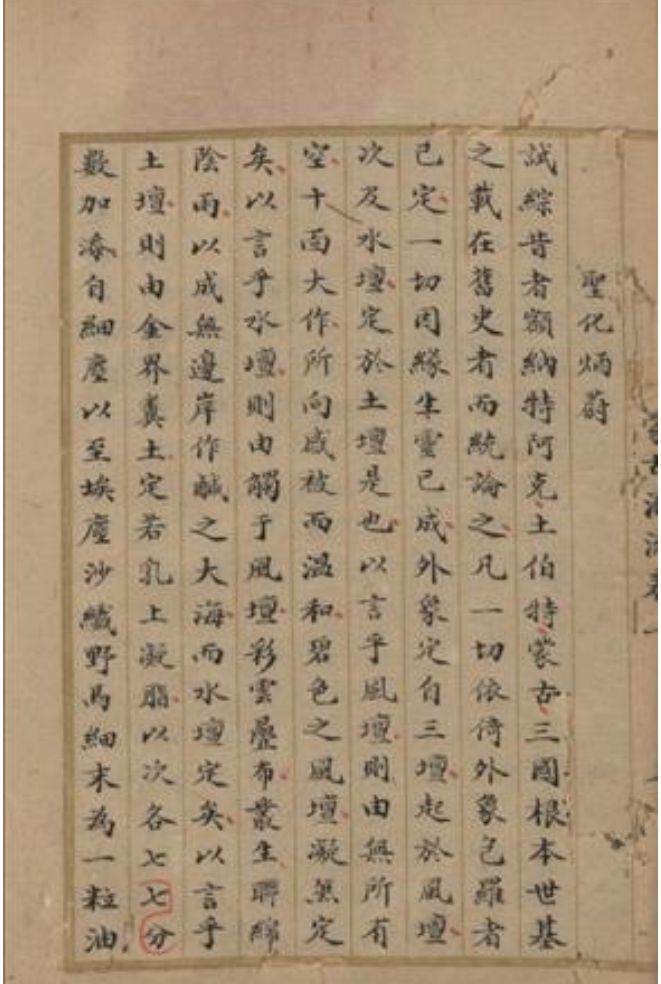 聖化炳蔚
試綜昔者額納特阿克土伯特蒙古三國根本世基
之載在舊史者而統論之凡一切依倚外象包羅者
已定一切因緣生靈已成外象定自三壇起於風壇
次及水壇定於土壇是也以言乎風壇則由無所有
空十面大作所向感被而溫和碧色之風壇凝無定
矣以言乎水壇則由觸于風壇彩雲疊布叢生聯綿
陰雨以成無邊岸作鹹之大海而水壇定矣以言乎
土壇則由金界糞土定若乳上凝脂以次各七七分
數加添自細塵以至埃塵沙纖野馬細末為一粒油